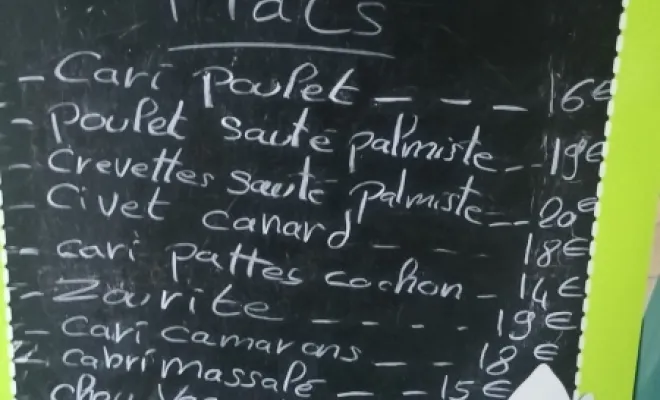 Plats
- Cari poulet - - - 16€
- Poulet sauté palmiste - - 19€
- Crevettes sauté palmiste - - 20€
- Civet canard - - - 18€
- cari pattes cochon - 14€
- Zourite - - - - 19€
- Cari camarons - - 18€
- cabri massalé - - 15€